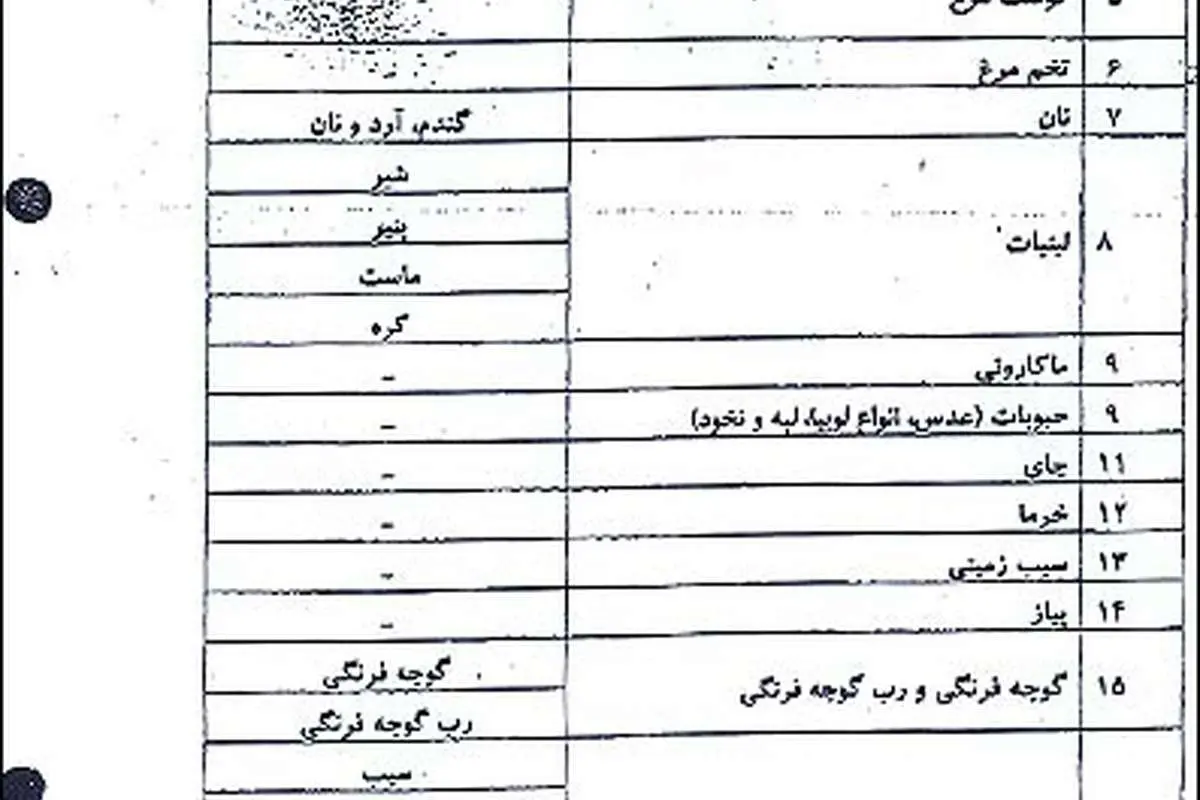 ۶ تخم مرغ
۷ نان گندم، آرد و نان
۸ لبنیات
شیر
پنیر
ماست
کره
۹ ماکارونی -
۹ حبوبات (عدس، انواع لوبیا، لپه و نخود) -
۱۱ چای -
۱۲ خرما -
۱۳ سیب زمینی -
۱۴ پیاز -
۱۵ گوجه فرنگی و رب گوجه فرنگی
گوجه فرنگی
رب گوجه فرنگی
سیب